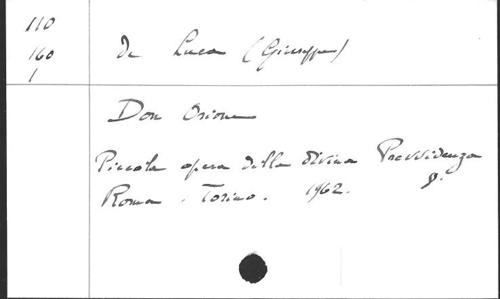 110
160
1
De Luca (Giuseppe)
Don Orione
Piccola opera della divina Provvidenza
Roma . Torino . 1962. 8.